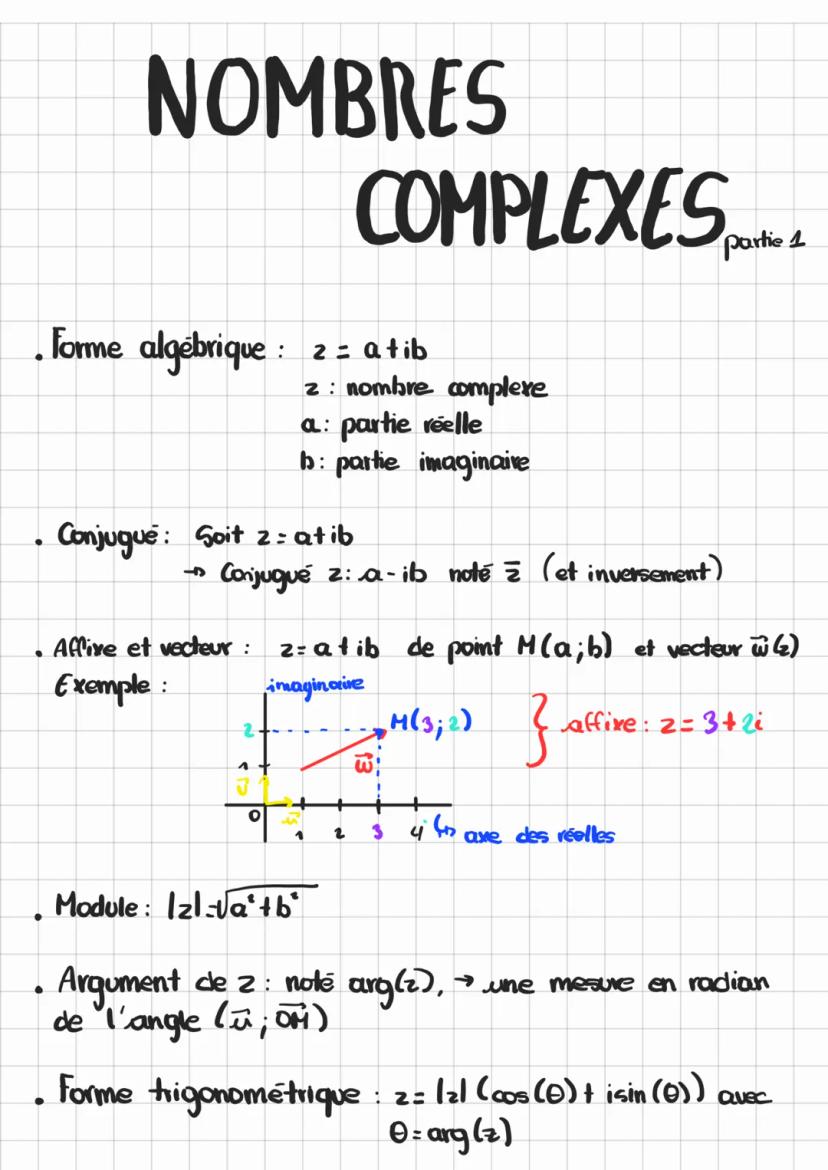 NOMBRES
COMPLEXES partie 1
. Forme algébrique : z = a + ib
z : nombre complexe
a : partie réelle
b : partie imaginaire
. Conjugué : Soit z = a + ib
→ Conjugué z : a - ib noté z̄ (et inversement)
. Affixe et vecteur : z = a + ib de point M(a;b) et vecteur w⃗(z)
Exemple :
imaginaire
2 M(3;2) } affixe : z = 3 + 2i
w⃗
1
v⃗
u⃗
0 1 2 3 4 ↪ axe des réelles
. Module : |z| = √(a² + b²)
. Argument de z : noté arg(z), → une mesure en radian
de l'angle (u⃗ ; OM⃗)
. Forme trigonométrique : z = |z| (cos(θ) + isin(θ)) avec
θ = arg(z)